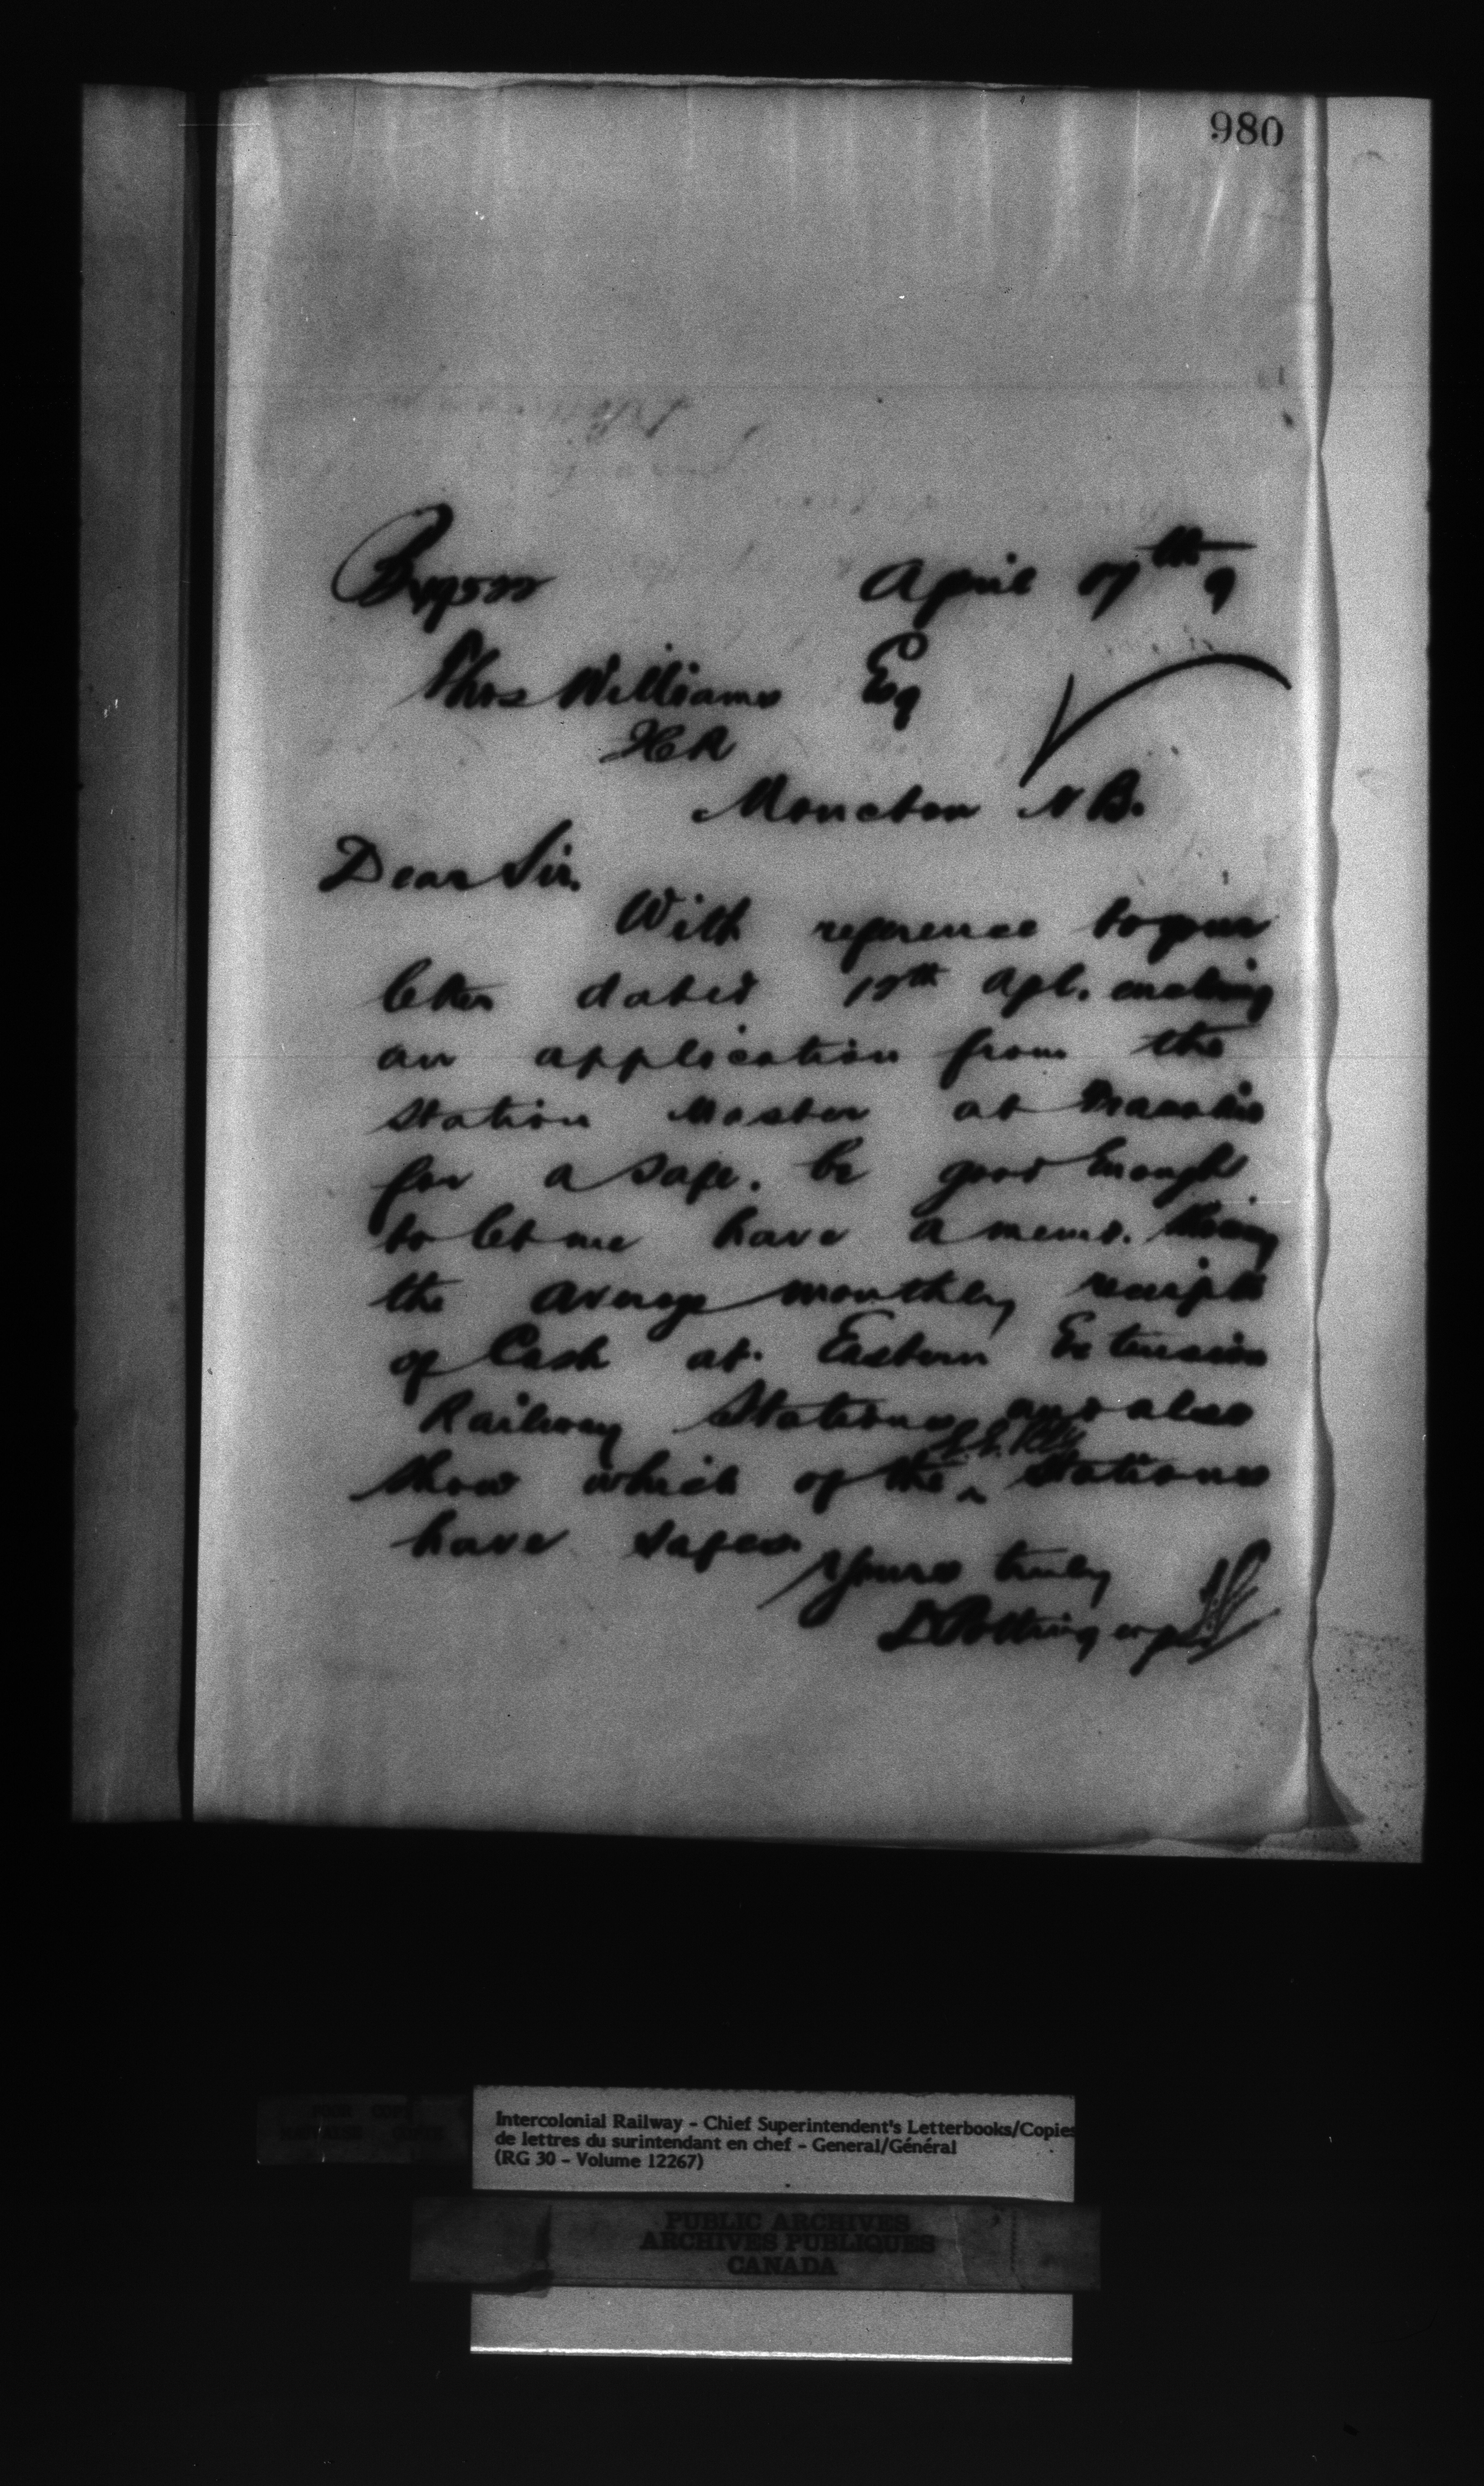 980
April 17th 9
Thos Williams Esq
Moncton N B.
Dear Sir.
With reference to your
letter dated Apl.
an application from the
Station Master at
for a safe. be good enough
to let me have a memo.
the average monthly receipts
of Cash at Eastern Extension
Railway Stations and also
show which of the Stations
have safes.
Yours truly
D Pottinger
Intercolonial Railway - Chief Superintendent's Letterbooks/Copies
de lettres du surintendant en chef - General/Général
(RG 30 - Volume 12267)
PUBLIC ARCHIVES
ARCHIVES PUBLIQUES
CANADA